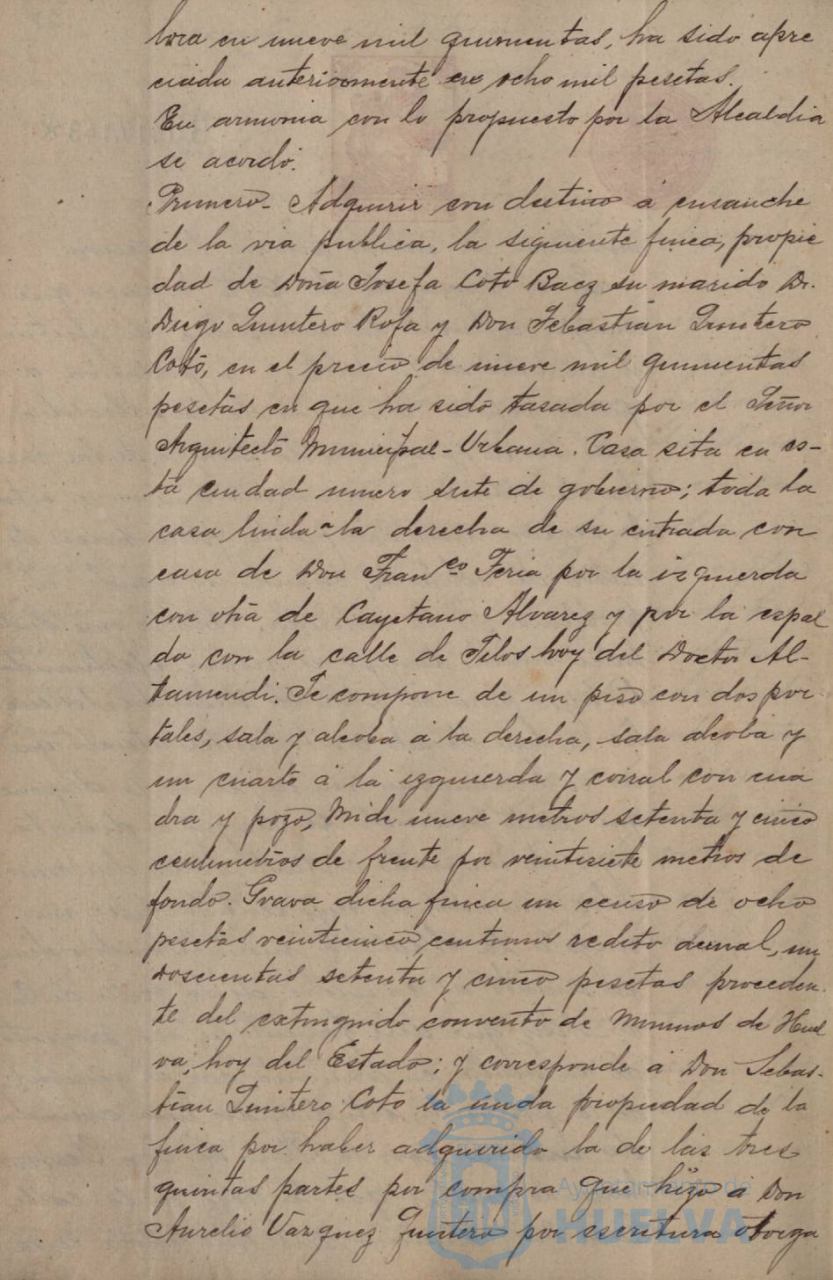 lora en nueve mil quinientas, ha sido apre
ciada anteriormente en ocho mil pesetas.
En armonia con lo propuesto por la Alcaldia
se acordó.
Primero- Adquirir con destino á ensanche
de la via publica, la siguiente finca, propie
dad de Doña Josefa Coto Baez su marido Dn.
Diego Quintero Rofa y Don Sebastian Quintero
Coto, en el precio de nueve mil quinientas
pesetas en que ha sido tasada por el Señor
Arquitecto Municipal-Urbana. Casa sita en es-
ta ciudad numero siete de gobierno; toda la
casa linda a la derecha de su entrada con
casa de Don Franco Feria por la izquierda
con otra de Cayetano Alvarez y por la espal
da con la calle de Tilos hoy del Doctor Al-
tamendi. Se compone de un piso con dos por
tales, sala y alcoba á la derecha, sala alcoba y
un cuarto á la izquierda y corral con cua
dra y pozo, Mide nueve metros setenta y cinco
centimetros de frente por veintisiete metros de
fondo. Grava dicha finca un censo de ocho
pesetas veinticinco centimos redito anual,
doscientas setenta y cinco pesetas proceden
te del extinguido convento de Minimos de Huel
va, hoy del Estado; y corresponde á Don Sebas-
tian Quintero Coto la nuda propiedad de la
finca por haber adquirido la de las tres
quintas partes por compra que hizo a Don
Aurelio Vazquez Quintero por escritura otorga
Ayuntamiento de
HUELVA